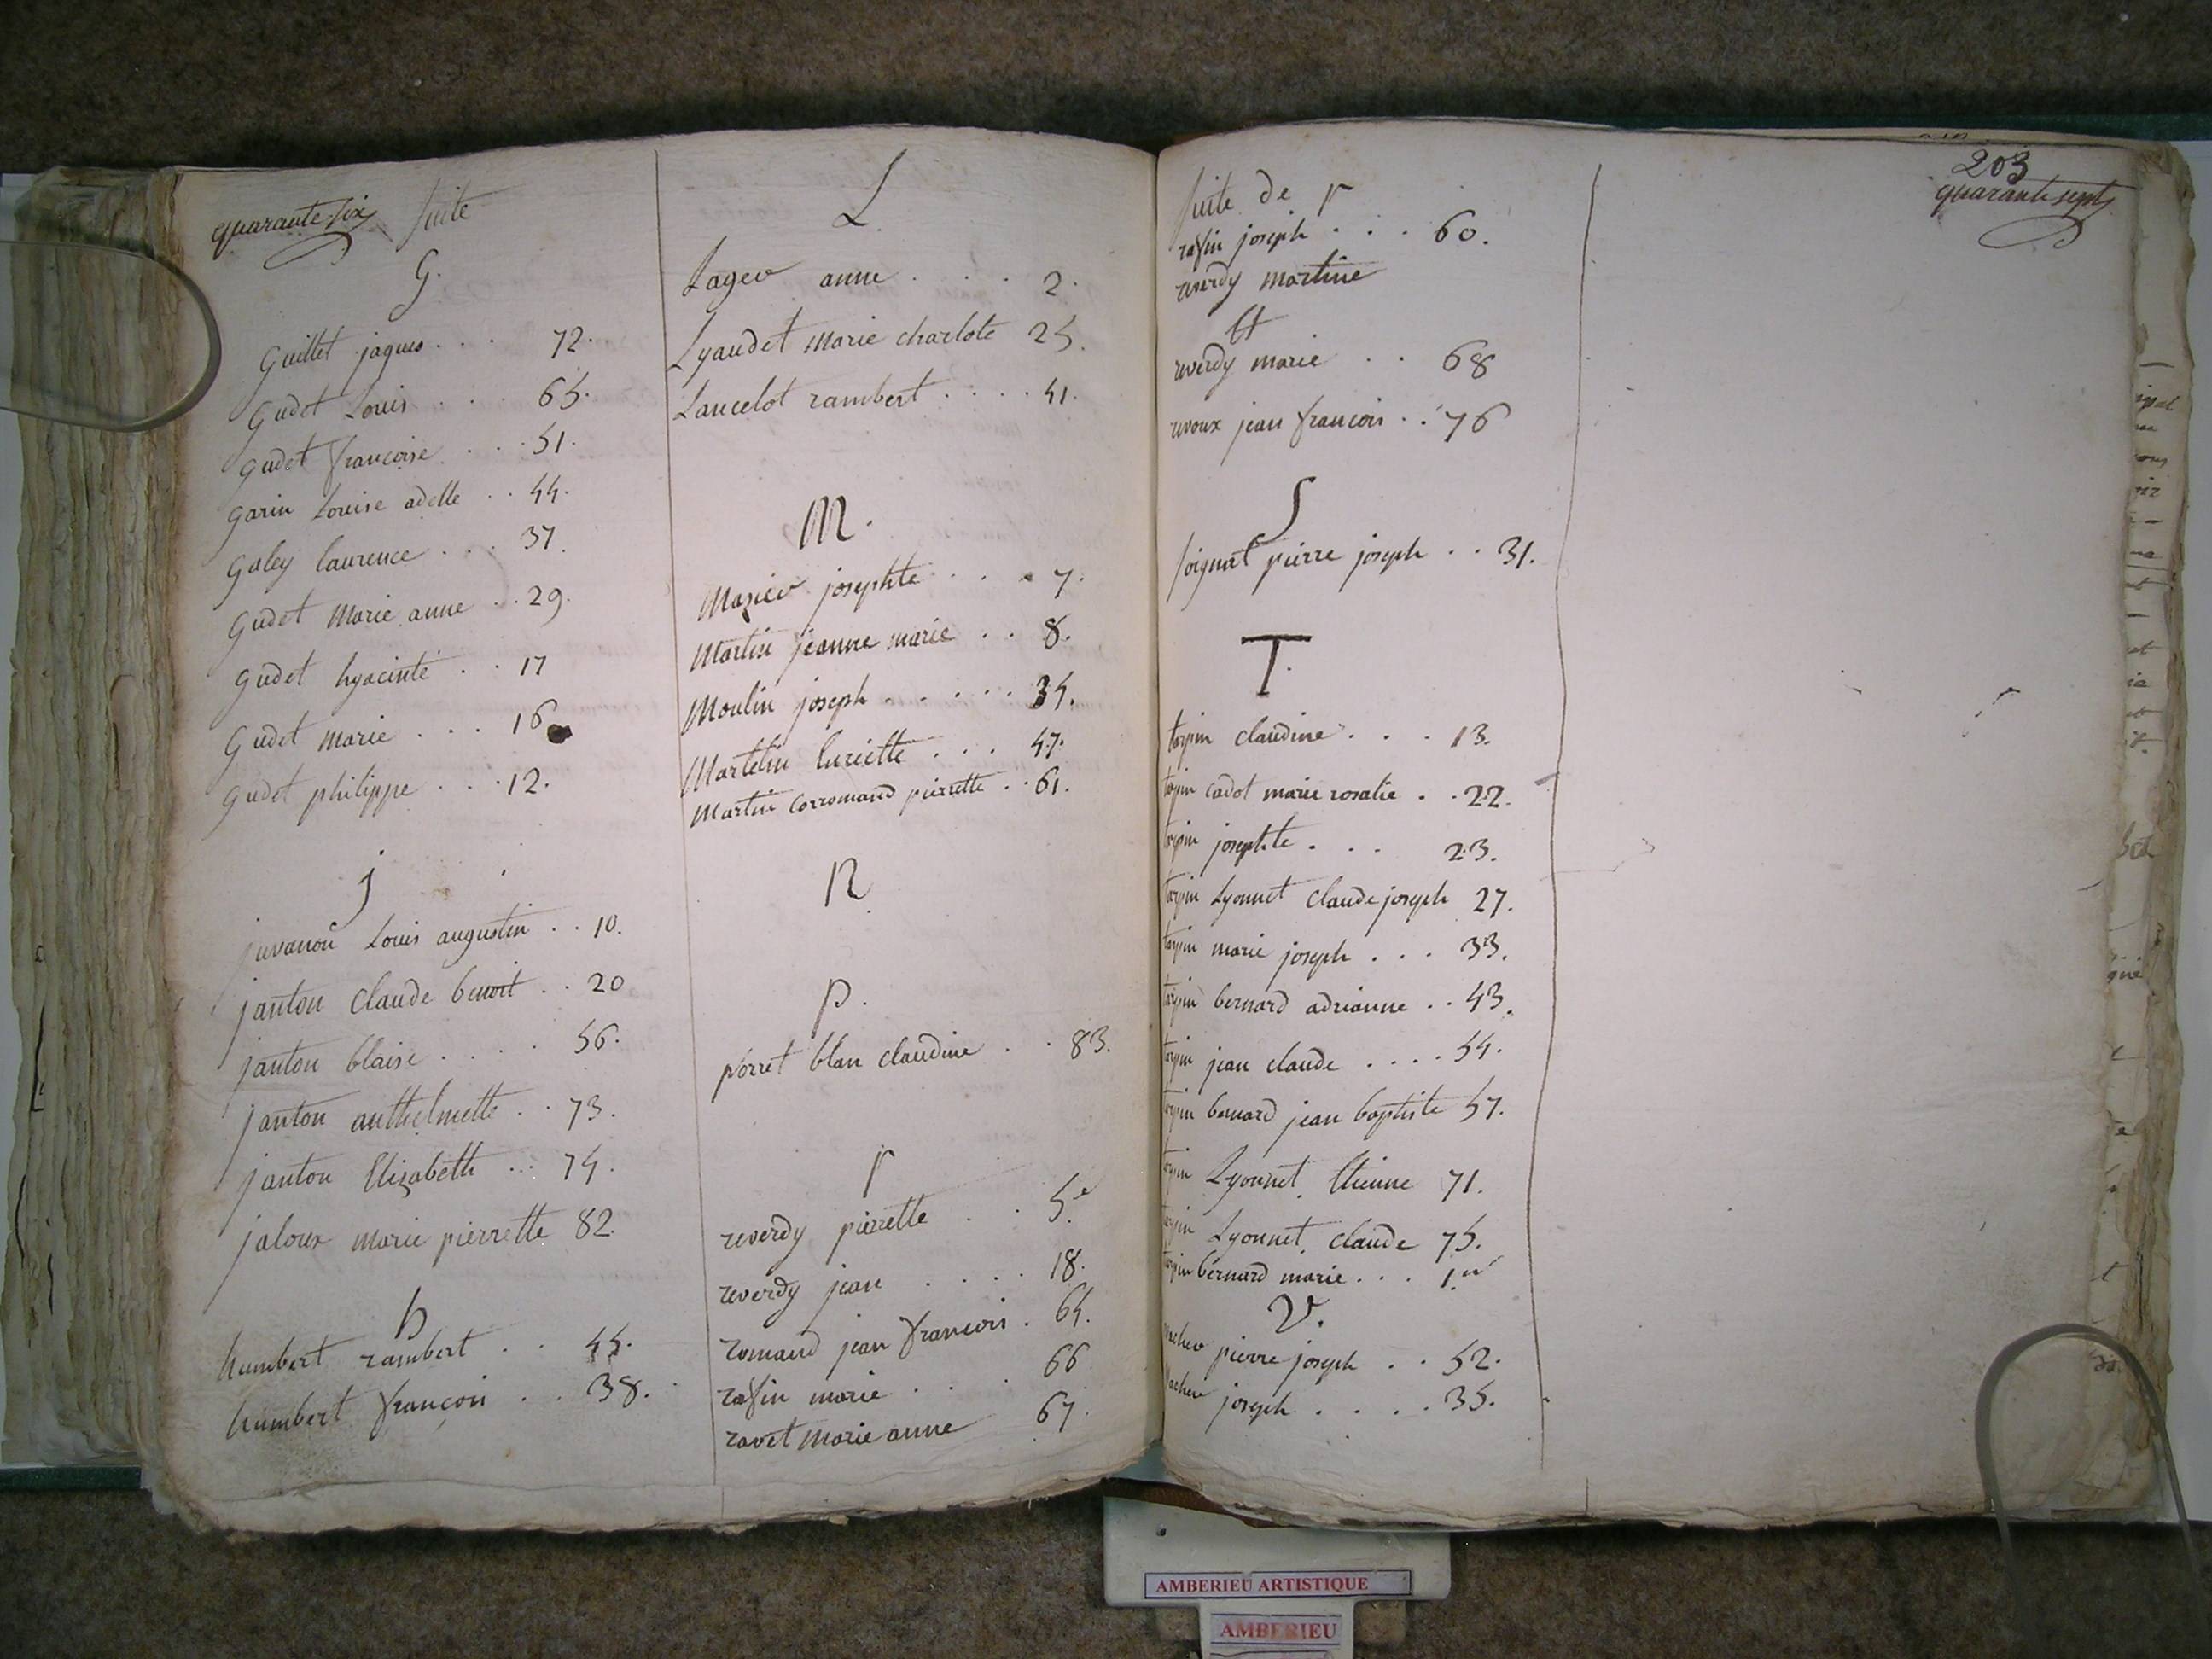 quarante six suite
G.
Guillet jaques . . . 72.
Gudet Louis . . . 65.
Gudet francoise . . . 51.
Garin Louise adelle . . 44.
Galey laurence . . . 37.
Gudet Marie anne . . 29.
Gudet hyacinte . . 17
Gudet marie . . . 16
Gudet philippe . . . 12.
j
juvanon Louis augustin . . 10.
janton Claude benoit . . 20
janton blaise . . . . 56.
janton anthelmette . . 73.
janton Elizabeth . . . 74.
jaloux marie pierrette 82.
h
humbert rambert . . 45.
humbert françois . . 38.
L
Lager anne . . . 2.
Lyaudet Marie charlote 25.
Lancelot rambert . . . . 41.
M.
Mazier josephte . . . 7.
Martin jeanne marie . . 8.
Moulin joseph . . . . . 34.
Martelin luriette . . . 47.
Martin Corromand pierrette . . 61.
N
p.
porret blan claudine . . 83.
r
reverdy pierrette . . 5.e
reverdy jean . . . . 18.
romand jean francois . 64.
rafin marie . . . 66
ravet Marie anne 67.
203
quarante sept
suite de r
rafin joseph . . . 60.
reverdy martine
Et
reverdy marie . . 68
revoux jean francois . . 76
S
soignat pierre joseph . . 31.
T.
torpin claudine . . . 13.
torpin cadot marie rosalie . . 22.
torpin josephte . . . 23.
torpin Lyonnet claude joseph 27.
torpin marie joseph . . . 33.
torpin bernard adrianne . . 43.
torpin jean claude . . . . 54.
torpin bernard jean baptiste 57.
torpin Lyonnet Etienne 71.
torpin Lyonnet claude 75.
torpin bernard marie . . . 1.er
V.
vacher pierre joseph . . 52.
vacher joseph . . . . 35.
AMBERIEU ARTISTIQUE
AMBERIEU